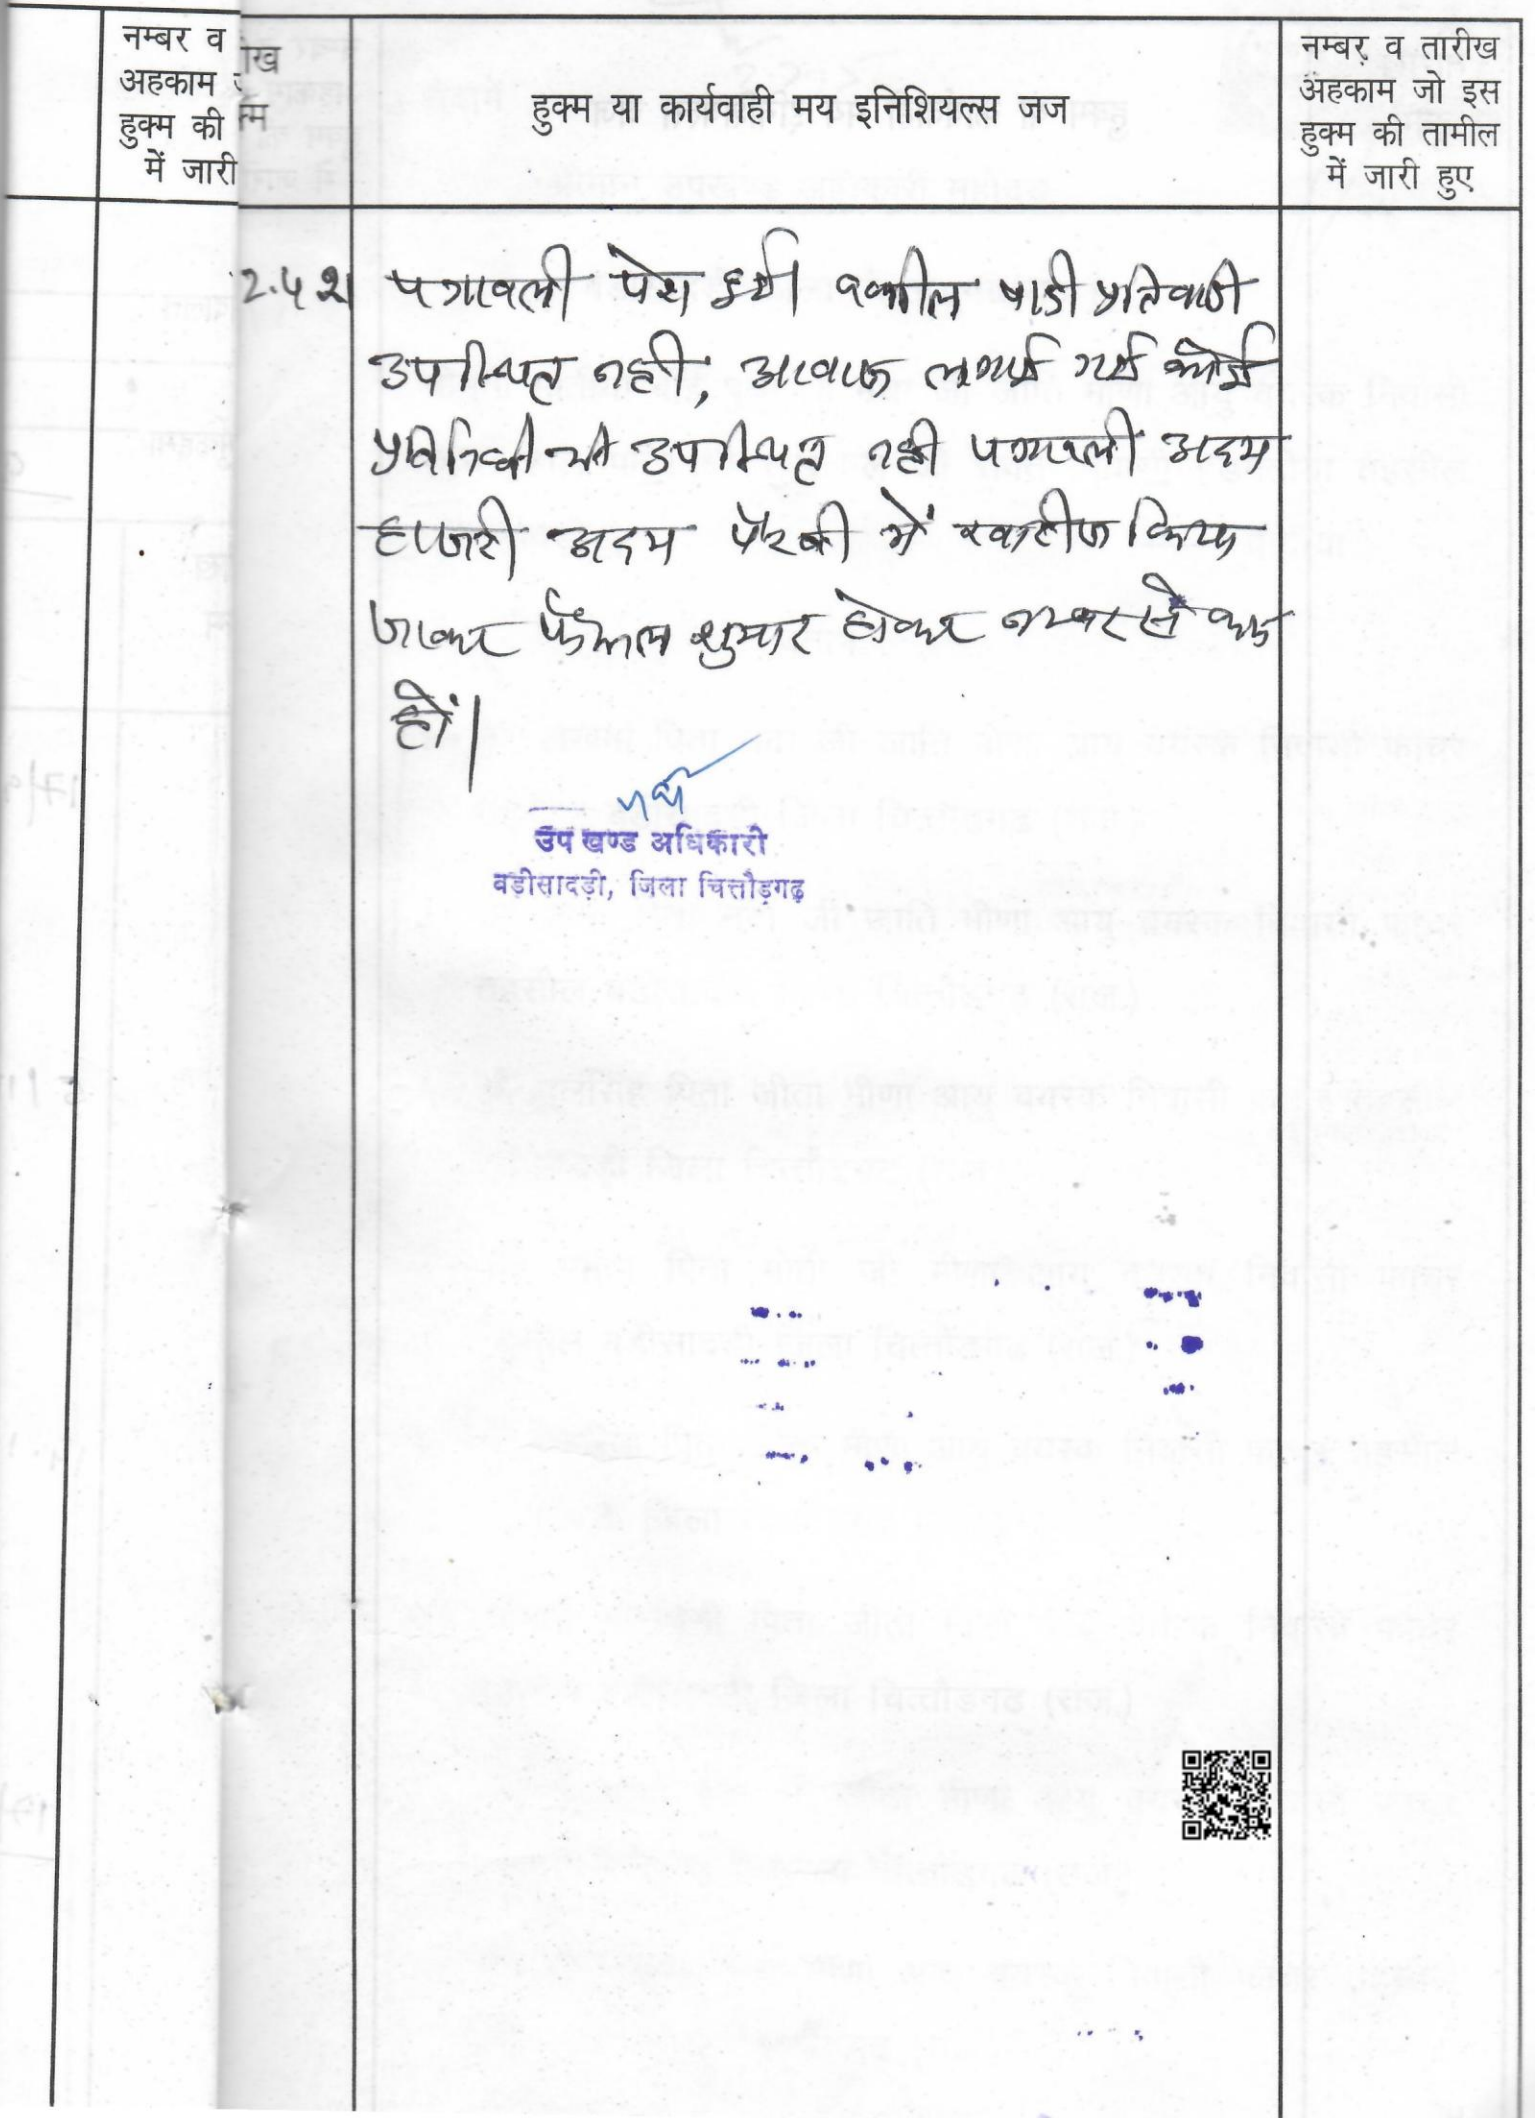 नम्बर व
अहकाम
हुक्म की
में जारी
हुक्म या कार्यवाही मय इनिशियल्स जज
नम्बर व तारीख
अहकाम जो इस
हुक्म की तामील
में जारी हुए
पत्रावली पेश हुई। वकील वादी प्रतिवादी
उपस्थित नही, आवाज लगाई गई कोई
प्रतिनिधी भी उपस्थित नही पत्रावली अदम
हाजरी अदम पैरवी में खारीज किया
जाकर फैसल शुमार होकर नम्बर से कम
हों।
उप खण्ड अधिकारी
बड़ीसादड़ी, जिला चित्तौड़गढ़